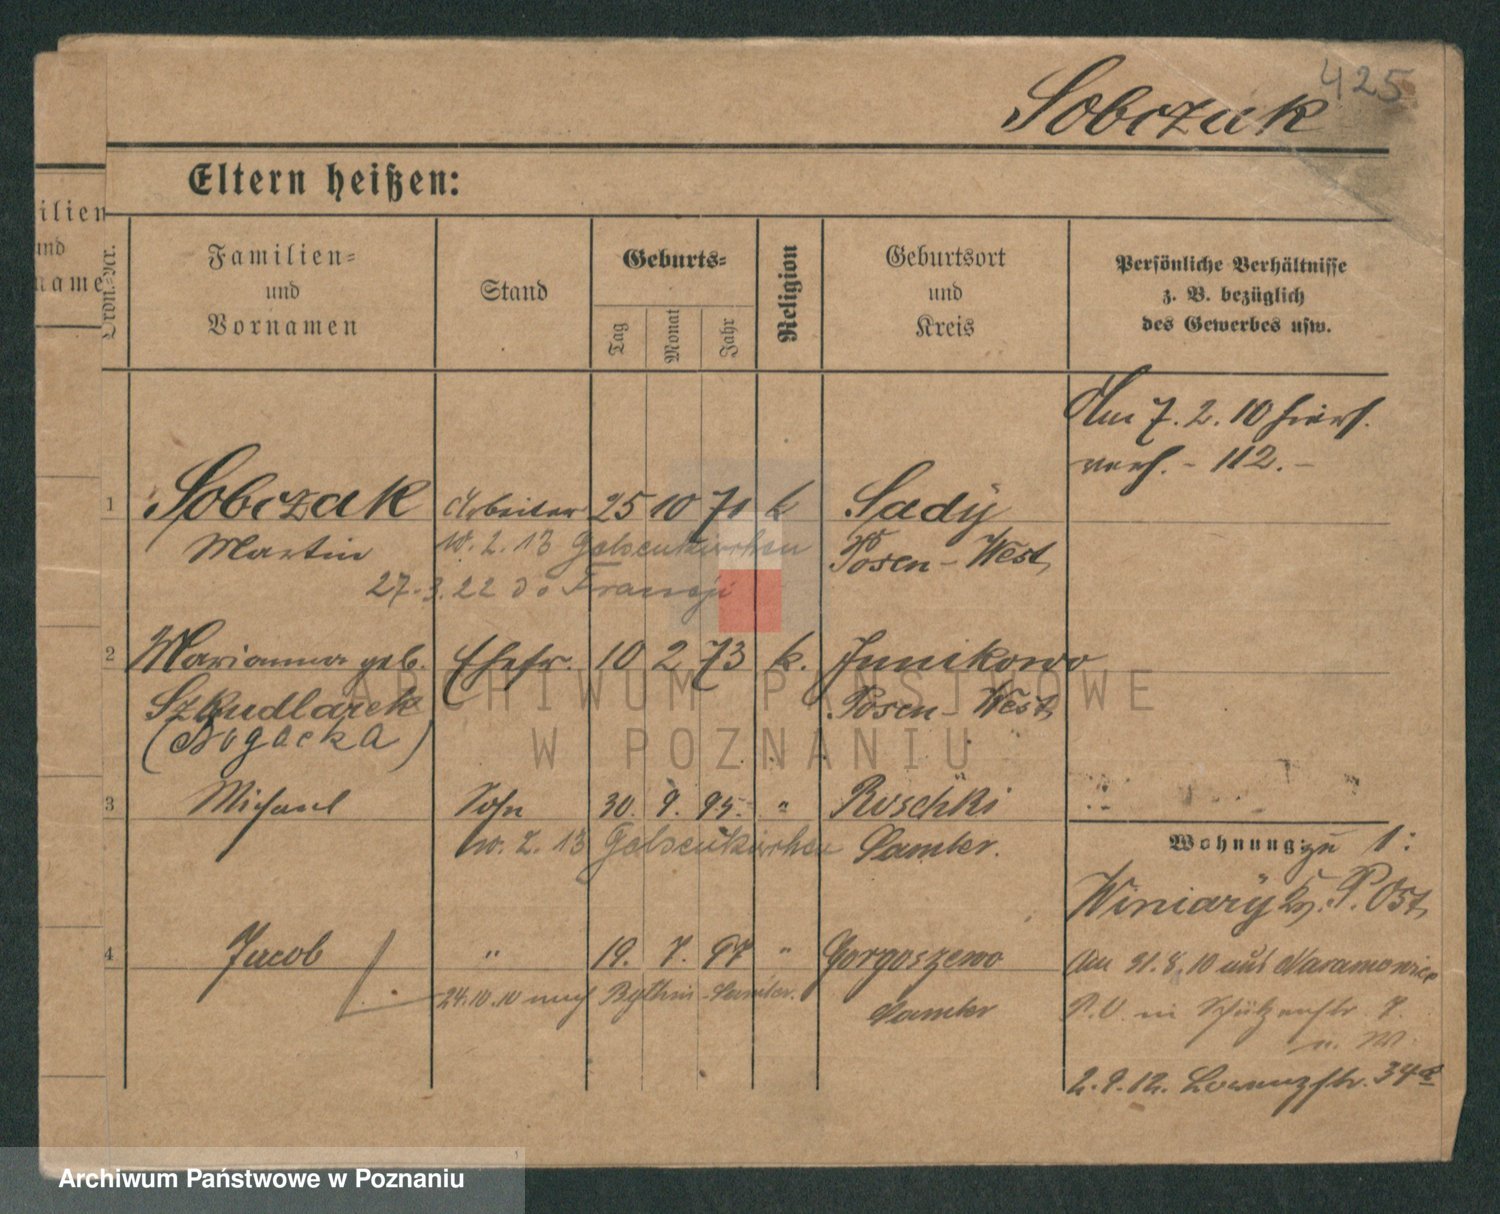 425
Sobczak
Eltern heißen:
ilien
und
name
Ordn.-Nr.
Familien-
und
Vornamen
Stand
Geburts-
Tag
Monat
Jahr
Religion
Geburtsort
und
Kreis
Persönliche Verhältnisse
z. B. bezüglich
des Gewerbes usw.
Am 7. 2. 10
verh. - 112. -
1 Sobczak Arbeiter 25 10 71 k Sady
Martin 10. 2. 13 Gelsenkirchen Posen-West
27.3.22 do Francji
2 Marianna geb. Ehefr. 10 2 73 k. Junikowo
Szkudlarek Posen-West
(Bogacka)
3 Michael Sohn 30. 9. 95. " Ruschki
10. 2. 13 Gelsenkirchen Samter.
Wohnung: zu 1:
Winiary Kr. P. Ost
4 Jacob " 19. 7. 97 " Gorgoszewo
24.10.10 nach Bythin Samter. Samter
Am 31. 8. 10 aus Naramowice
P.O. in Schützenstr. 7.
n. W.
2. 9. 12. Lorenzstr. 34a
ARCHIWUM PAŃSTWOWE
W POZNANIU
Archiwum Państwowe w Poznaniu